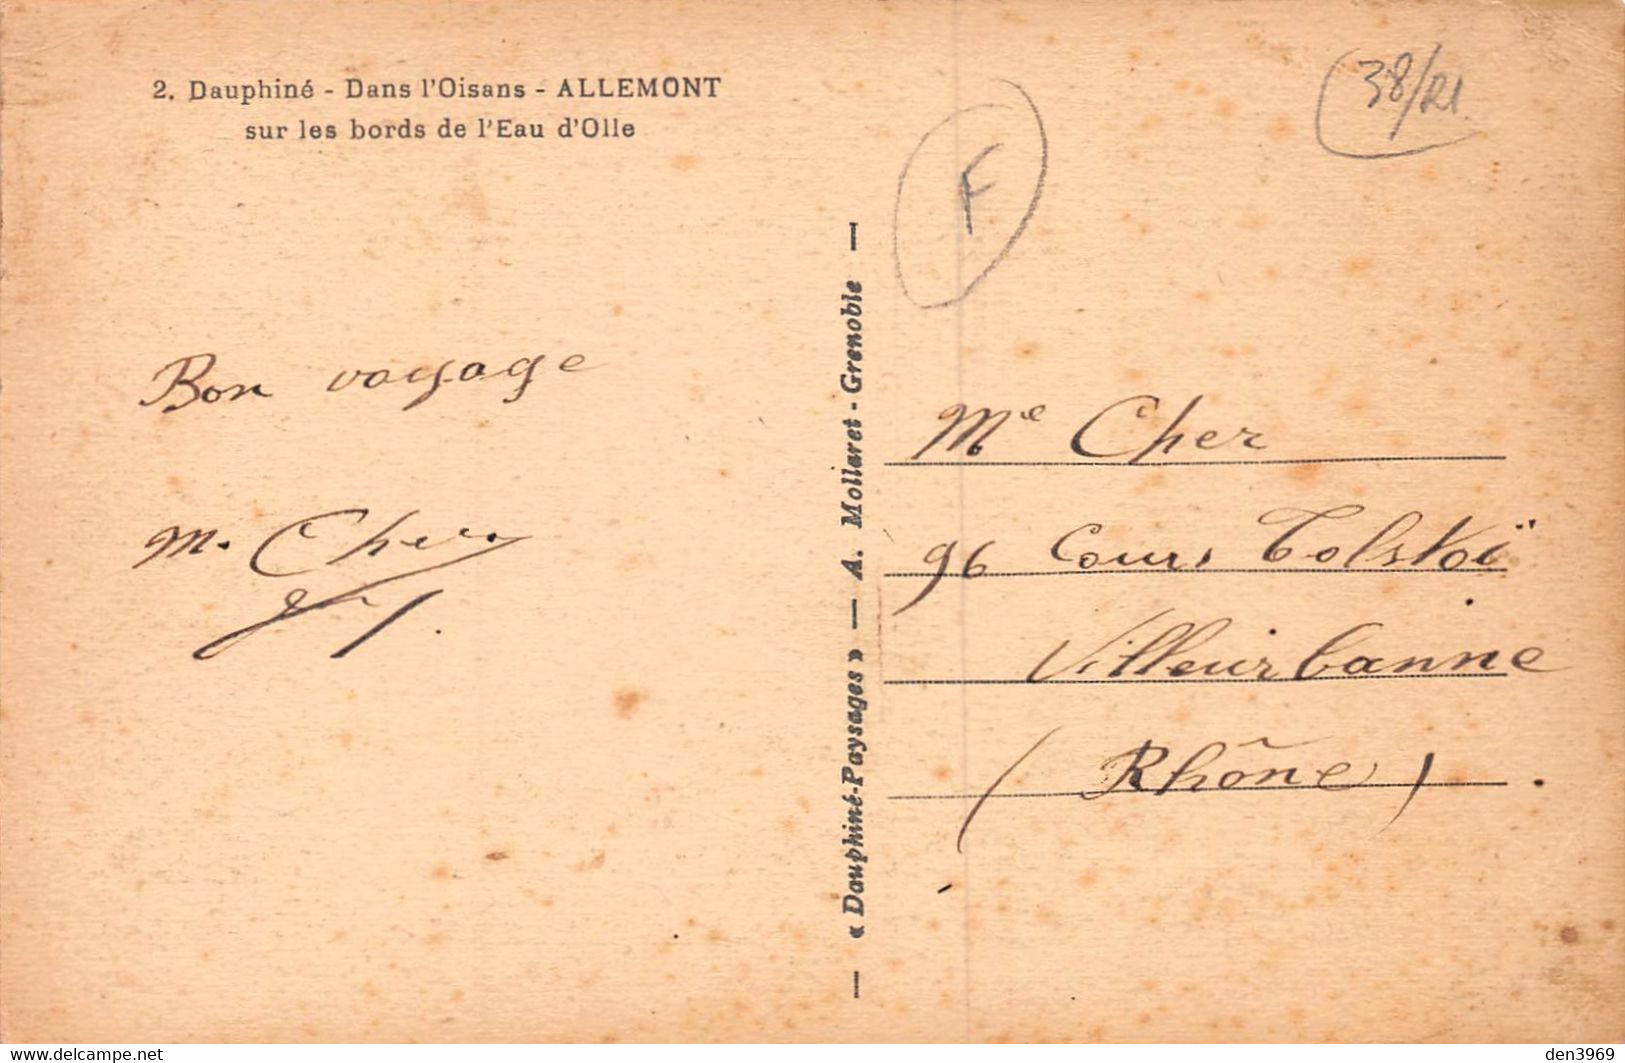 2. Dauphiné - Dans l'Oisans - ALLEMONT
sur les bords de l'Eau d'Olle
38/21
F
Bon voyage
M. Cher
« Dauphiné-Paysages » — A. Mollaret - Grenoble —
Me Cher
96 Cours Tolstoï
Villeurbanne
(Rhône).
www.delcampe.net
den3969